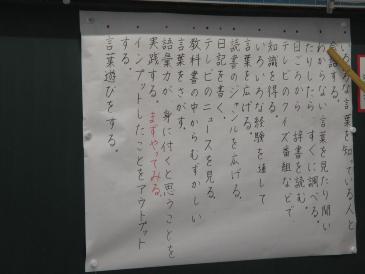 いろいろな言葉を知っている人と
会話する。
わからない言葉を見たり聞い
たりしたら、すぐに調べる。
日ごろから、辞書を読む。
テレビのクイズ番組などで
知識を得る。
いろいろな経験を通して
言葉を広げる。
読書のジャンルを広げる。
日記を書く。
テレビのニュースを見る。
教科書の中からむずかしい
言葉をさがす。
語彙力が身に付くと思うことを
実践する。まずやってみる。
インプットしたことをアウトプット
する。
言葉遊びをする。